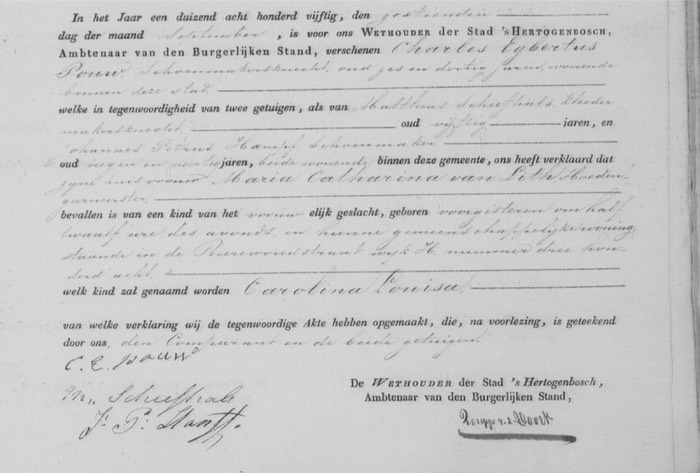 In het Jaar een duizend acht honderd vijftig, den zestienden
dag der maand September, is voor ons WETHOUDER der Stad 's HERTOGENBOSCH,
Ambtenaar van den Burgerlijken Stand, verschenen Charles Egbertus
Pouw, Schoenmakersknecht, oud zes en dertig jaren, wonende
binnen deze stad
welke in tegenwoordigheid van twee getuigen, als van Mattheus kleeder
makersknecht oud vijftig jaren, en
Johannes Petrus Schoenmaker
oud negen en jaren, beide wonende binnen deze gemeente, ons heeft verklaard dat
zyne huisvrouw Maria Catharina van Lith, Hoeden
garneerster
bevallen is van een kind van het vrouwelijk geslacht, geboren voorgisteren om half
twaalf ure des avonds, in hunne gemeenschappelijke woning
staande in de wijk H. nummer drie hon
derd acht.
welk kind zal genaamd worden Carolina Louisa
van welke verklaring wij de tegenwoordige Akte hebben opgemaakt, die, na voorlezing, is geteekend
door ons, den Comparant en de beide getuigen.
C. E. Pouw
M.,
J. P.
De WETHOUDER der Stad 's Hertogenbosch,
Ambtenaar van den Burgerlijken Stand,